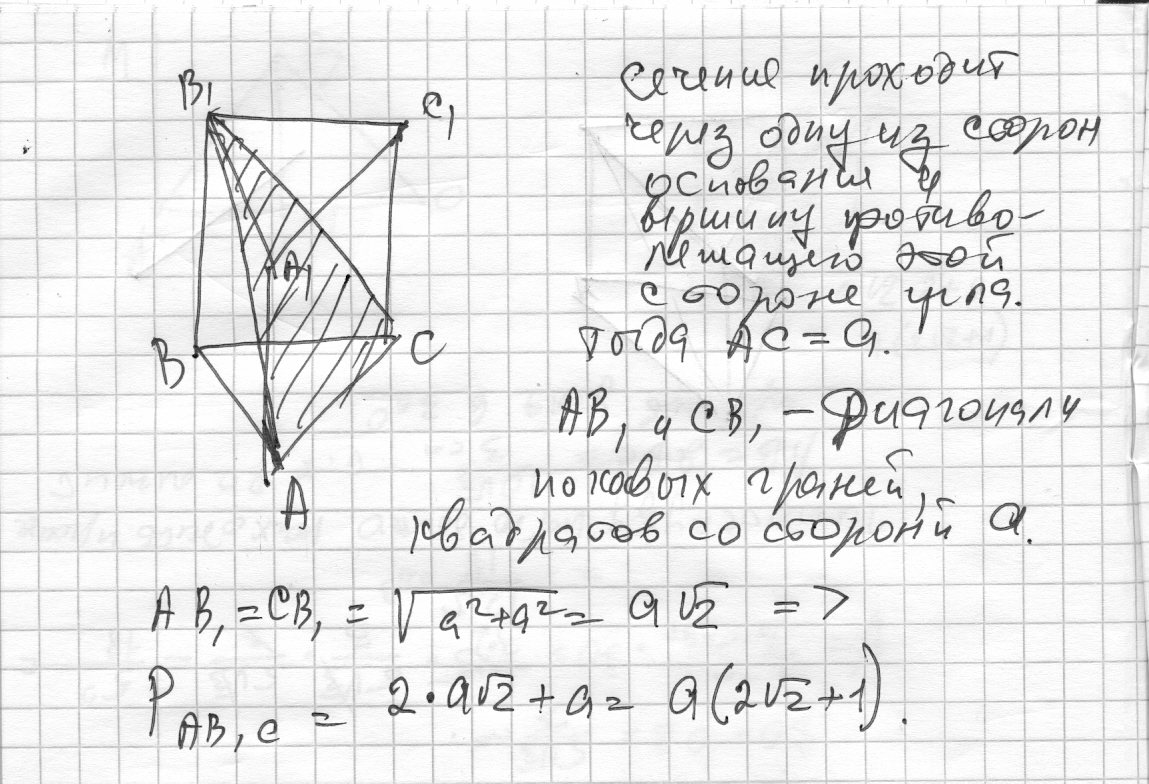 B₁
C₁
A₁
B
C
A
Сечение проходит
через одну из сторон
основания и
вершину противо-
лежащего этой
стороне угла.
Тогда AC = a.
AB₁ и CB₁ – диагонали
боковых граней,
квадратов со стороной a.
AB₁ = CB₁ = √(a²+a²) = a√2 =>
P_AB₁C = 2·a√2 + a = a(2√2+1).